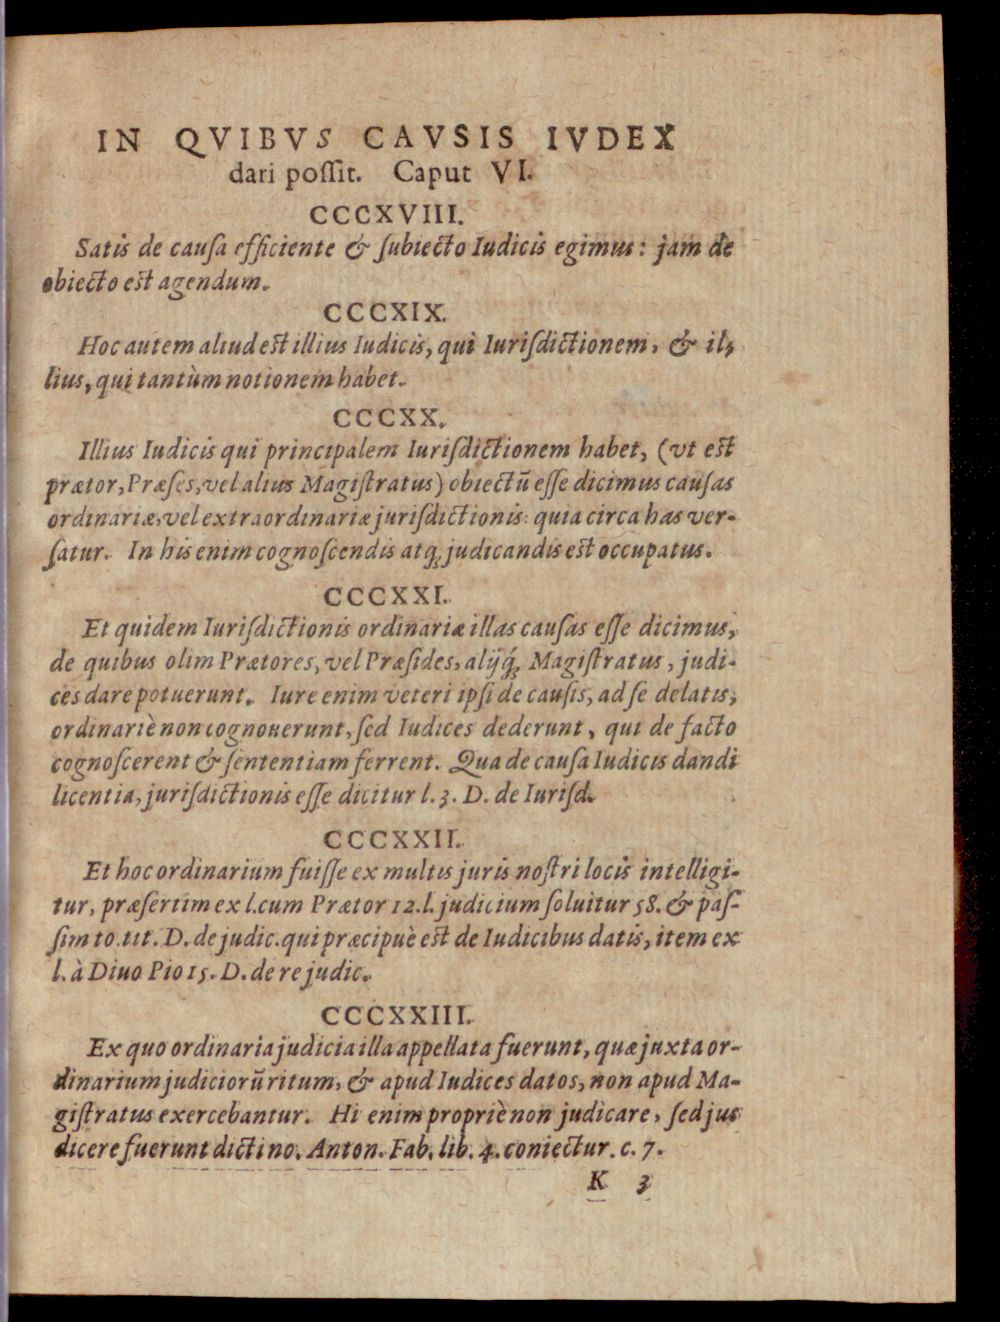 IN QVIBVS CAVSIS IVDEX
dari poſſit. Caput VI.
CCCXVIII.
Satis de cauſa efficiente & ſubiecto Iudicis egimus: jam de
obiecto est agendum.
CCCXIX.
Hoc autem aliud est illius Iudicis, qui Iuriſdictionem, & il-
lius, qui tantùm notionem habet.
CCCXX.
Illius Iudicis qui principalem Iuriſdictionem habet, (vt est
prætor, Præſes, vel alius Magiſtratus) obiectũ eſſe dicimus cauſas
ordinariæ, vel extraordinariæ juriſdictionis: quia circa has ver-
ſatur. In his enim cognoſcendis atq́; judicandis est occupatus.
CCCXXI.
Et quidem Iuriſdictionis ordinariæ illas cauſas eſſe dicimus,
de quibus olim Prætores, vel Præſides, alijq́; Magiſtratus, judi-
ces dare potuerunt. Iure enim veteri ipſi de cauſis, ad ſe delatis,
ordinariè non cognouerunt, ſed Iudices dederunt, qui de facto
cognoſcerent & ſententiam ferrent. Qua de cauſa Iudicis dandi
licentia, juriſdictionis eſſe dicitur l. 3. D. de Iuriſd.
CCCXXII.
Et hoc ordinarium fuiſſe ex multis juris noſtri locis intelligi-
tur, præſertim ex l. cum Prætor 12. l. judicium ſoluitur 58. & paſ-
ſim to. tit. D. de judic. qui præcipuè est de Iudicibus datis, item ex
l. à Diuo Pio 15. D. de re judic.
CCCXXIII.
Ex quo ordinaria judicia illa appellata fuerunt, quæ juxta or-
dinarium judiciorũ ritum, & apud Iudices datos, non apud Ma-
giſtratus exercebantur. Hi enim propriè non judicare, ſed jus
dicere fuerunt dicti no. Anton. Fab. lib. 4. coniectur. c. 7.
K 3